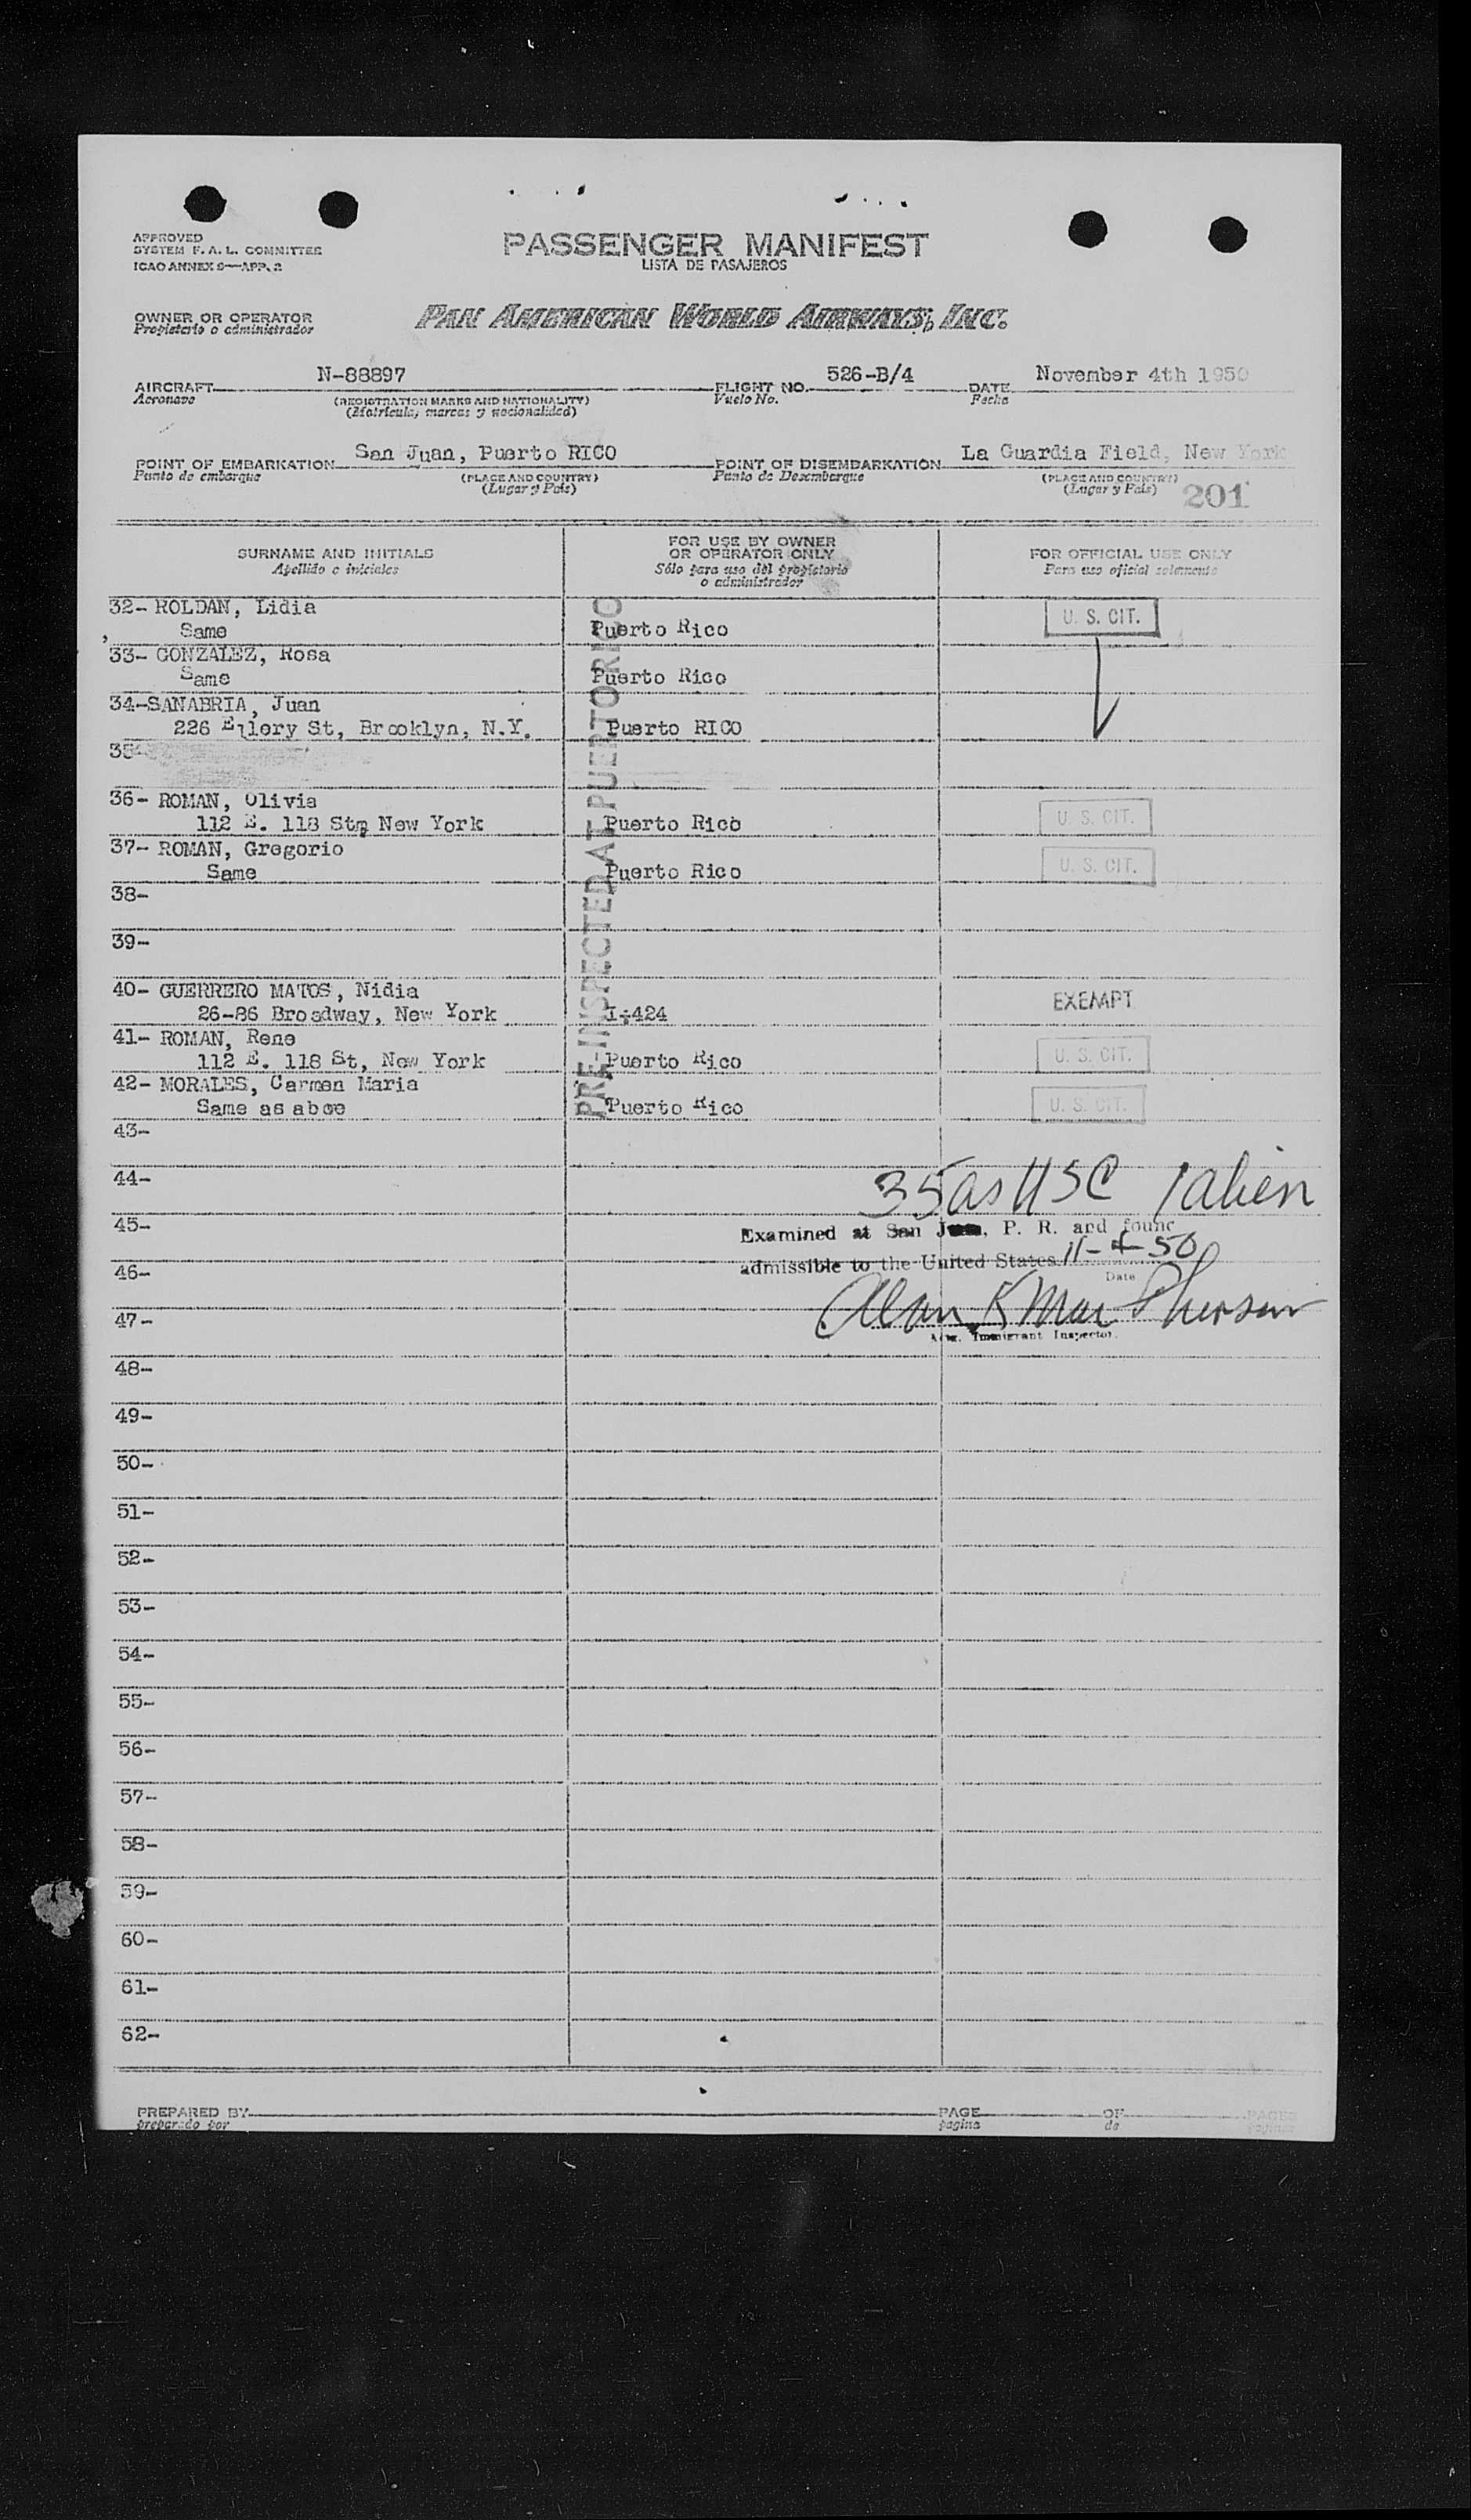 APPROVED
SYSTEM F. A. L. COMMITTEE
ICAO ANNEX 9—APP. 2
PASSENGER MANIFEST
LISTA DE PASAJEROS
OWNER OR OPERATOR
Propietario o administrador
PAN AMERICAN WORLD AIRWAYS, INC.
AIRCRAFT N-88897 FLIGHT NO. 526-B/4 DATE November 4th 1950
Aeronave (REGISTRATION MARKS AND NATIONALITY) Vuelo No. Fecha
(Matrícula, marcas y nacionalidad)
POINT OF EMBARKATION San Juan, Puerto RICO POINT OF DISEMBARKATION La Guardia Field, New York
Punto de embarque (PLACE AND COUNTRY) Punto de Desembarque (PLACE AND COUNTRY)
(Lugar y País) (Lugar y País) 201
SURNAME AND INITIALS FOR USE BY OWNER OR OPERATOR ONLY FOR OFFICIAL USE ONLY
Apellido e iniciales Sólo para uso del propietario o administrador Para uso oficial solamente
PRE-INSPECTED AT PUERTO RICO
32- ROLDAN, Lidia U. S. CIT.
Same Puerto Rico
33- GONZALEZ, Rosa
Same Puerto Rico
34-SANABRIA, Juan
226 Ellery St, Brooklyn, N.Y. Puerto RICO
35-
36- ROMAN, Olivia
112 E. 118 Stm New York Puerto Rico U. S. CIT.
37- ROMAN, Gregorio
Same Puerto Rico U. S. CIT.
38-
39-
40- GUERRERO MATOS, Nidia EXEMPT
26-86 Broadway, New York I-424
41- ROMAN, Rene
112 E. 118 St, New York Puerto Rico U. S. CIT.
42- MORALES, Carmen Maria
Same as aboe Puerto Rico U. S. CIT.
43-
44- 35 as USC 1 alien
45- Examined at San Juan, P. R. and found
46- admissible to the United States 11-4-50
Date
47- Alan K MacPherson
Immigrant Inspector.
48-
49-
50-
51-
52-
53-
54-
55-
56-
57-
58-
59-
60-
61-
62-
PREPARED BY PAGE OF PAGES
preparado por página de páginas